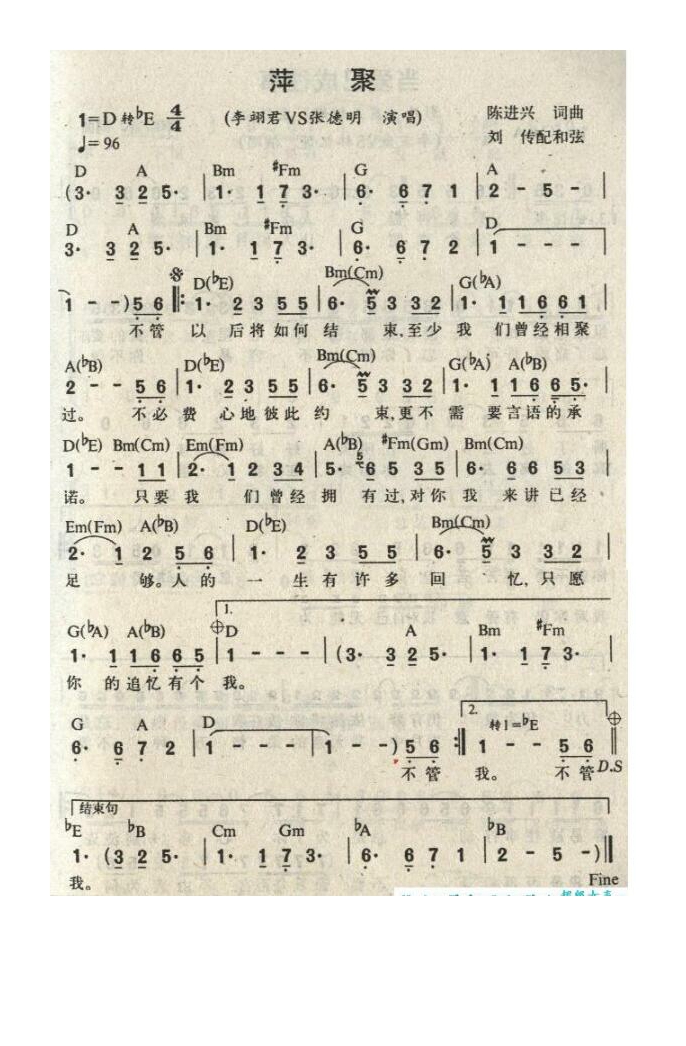 萍 聚
1=D 转♭E 4/4 (李翊君VS张德明 演唱) 陈进兴 词曲
♩=96 刘 传配和弦
D A Bm #Fm G A
(3· 3 2 5· | 1· 1 7 3· | 6· 6 7 1 | 2 - 5 - |
D A Bm #Fm G D
3· 3 2 5· | 1· 1 7 3· | 6· 6 7 2 | 1 - - - |
D(♭E) Bm(Cm) G(♭A)
1 - -)5 6 ‖: 1· 2 3 5 5 | 6· 5 3 3 2 | 1· 1 1 6 6 1 |
不管 以 后将如何 结 束,至少 我 们曾经相聚
A(♭B) D(♭E) Bm(Cm) G(♭A) A(♭B)
2 - - 5 6 | 1· 2 3 5 5 | 6· 5 3 3 2 | 1· 1 1 6 6 5· |
过。 不必 费 心地彼此 约 束,更不 需 要言语的承
D(♭E) Bm(Cm) Em(Fm) A(♭B) #Fm(Gm) Bm(Cm)
1 - - 1 1 | 2· 1 2 3 4 | 5· 5 6 5 3 5 | 6· 6 6 5 3 |
诺。 只要 我 们曾经 拥 有过,对你 我 来讲已经
Em(Fm) A(♭B) D(♭E) Bm(Cm)
2· 1 2 5 6 | 1· 2 3 5 5 | 6· 5 3 3 2 |
足 够。人的 一 生有许多 回 忆,只愿
1.
G(♭A) A(♭B) D A Bm #Fm
1· 1 1 6 6 5 | 1 - - - | (3· 3 2 5· | 1· 1 7 3· |
你 的追忆有个 我。
G A D 2. 转1=♭E
6· 6 7 2 | 1 - - - | 1 - -) 5 6 :‖ 1 - - 5 6 ‖
不管 我。 不管 D.S
结束句
♭E ♭B Cm Gm ♭A ♭B
1· (3 2 5· | 1· 1 7 3· | 6· 6 7 1 | 2 - 5 -)‖
我。 Fine